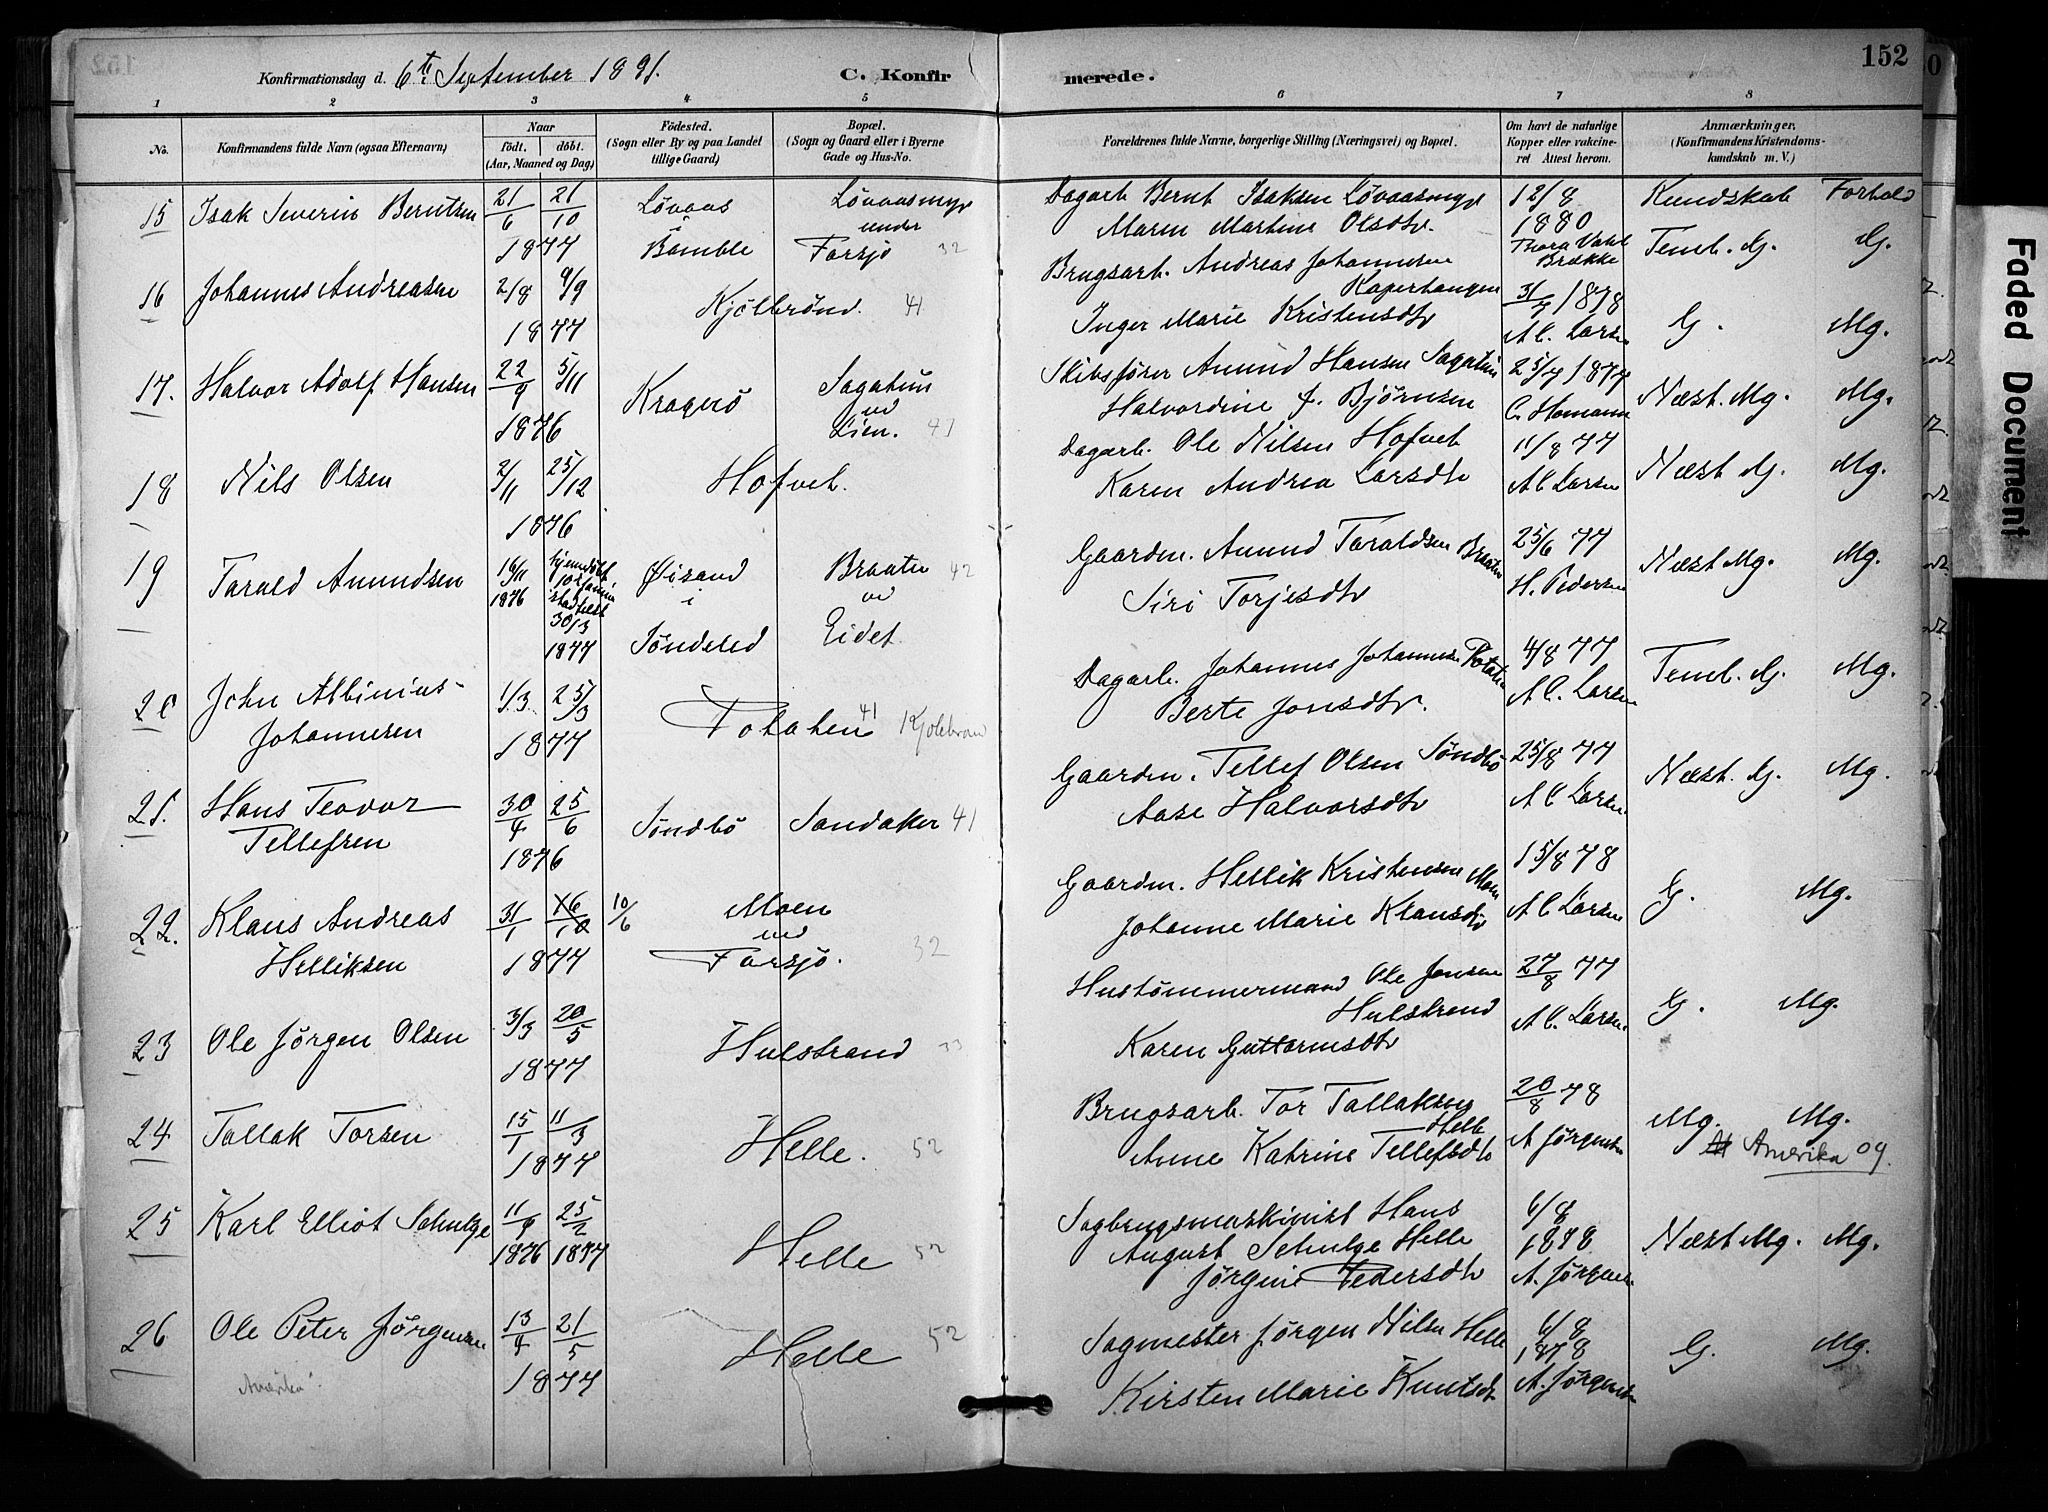 152
Konfirmationsdag d. 6te September 1891.
C. Konfirmerede.
1 2 3 4 5 6 7 8
No. Konfirmandens fulde Navn (ogsaa Efternavn) Naar født. døbt. (Aar, Maaned og Dag) Fødested. (Sogn eller By og paa Landet tillige Gaard) Bopæl. (Sogn og Gaard eller i Byerne Gade og Hus-No. Forældrenes fulde Navne, borgerlige Stilling (Næringsvei) og Bopæl. Om havt de naturlige Kopper eller vakcineret Attest herom. Anmærkninger. (Konfirmandens Kristendomskundskab m. V.)
Kundskab Forhold
15 Isak Severin Berntsen 21/6 21/10 1877 Løvaas i Bamble Løvaasmyr under Farsjø 32
Dagarb. Bernt Isaksen Løvaasmyr
Maren Martine Olsdtr. 12/8 1880 Thora Vahl Brække Teml. G. G.
16 Johannes Andreasen 2/8 9/9 1877 Kjølbrønd. 41
Brugsarb. Andreas Johannesen
Inger Marie Kristensdtr 31/7 1878 A C. Larsen G. Mg.
17. Halvor Adolf Hansen 22/9 5/11 1876 Kragerø Sagatun ved Lien. 41
Skibsfører Amund Hansen Sagatun
Halvordine f. Bjørnsen 25/7 1877 C. Homann Næst. Mg. Mg.
18 Nils Olsen 2/11 25/12 1876 Hofvet.
Dagarb. Ole Nilsen Hofvet
Karen Andrea Larsdtr 11/8 77 A C Larsen Næst G. Mg.
19 Tarald Amundsen 16/11 1876 hjemdøbt 30/3 1877 Øisand i Søndeled Braaten ved Eidet. 42
Gaardm. Amund Taraldsen Braaten
Siri Torjesdtr 25/6 77 H. Pedersen Næst Mg. Mg.
20 John Albinius Johannesen 1/3. 25/3 1877 Potaten 41
Dagarb. Johannes Johannesen Potaten
Berte Jonsdtr. 4/8 77 A C. Larsen Teml. G. Mg.
21. Hans Teodor Tellefsen 30/4 25/6 1876 Søndbø Sandaker 41
Gaardm. Tellef Olsen Søndbø
Aase Halvorsdtr 25/8 77 A C Larsen Næst. G. Mg.
22. Klaus Andreas Helliksen 31/1 10/6 1877 Moen ved Farsjø. 32
Gaardm. Hellik Kristensen Moen
Johanne Marie Klausdtr 15/8 78 A C Larsen G. Mg.
23 Ole Jørgen Olsen 3/3 20/5 1877 Hulstrand 33
Hustømmermand Ole Jonsen
Hulstrand
Karen Guttormsdtr 27/8 77 A C. Larsen G. Mg.
24 Tallak Torsen 15/1 11/3 1877 Helle. 52
Brugsarb. Tor Tallaksen
Helle
Anne Katrine Tellefsdtr 20/8 78 A Jørgensen Mg. Mg.
Amerika 09.
25 Karl Elliot Schulze 11/9 1876 25/2 1877 Helle 52
Sagbrugsmaskinist Hans
August Schulze Helle
Jørgine Pedersdtr 6/8 1878 A. Jørgensen Næst Mg. Mg.
26 Ole Peter Jørgensen 13/4 21/5 1877 Helle 52
Amerika
Sagmester Jørgen Nilsen Helle
Kirsten Marie Knutsdtr 6/8 1878 A. Jørgensen G. Mg.
Faded Document